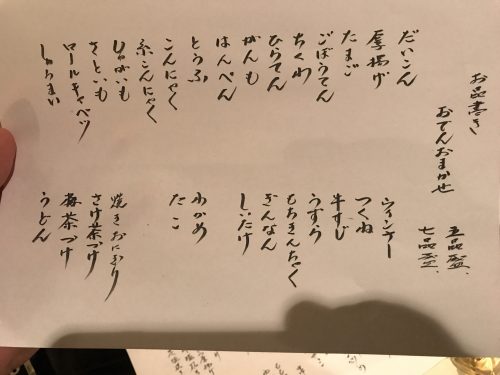 お品書き
おでんおまかせ
五品盛、
七品盛、
だいこん
厚揚げ
たまご
ごぼうてん
ちくわ
ひらてん
がんも
はんぺん
とうふ
こんにゃく
糸こんにゃく
じゃがいも
さといも
ロールキャベツ
しゅうまい
ウィンナー
つくね
牛すじ
うずら
もちきんちゃく
ぎんなん
しいたけ
わかめ
たこ
焼きおにぎり
さけ茶づけ
梅茶づけ
うどん